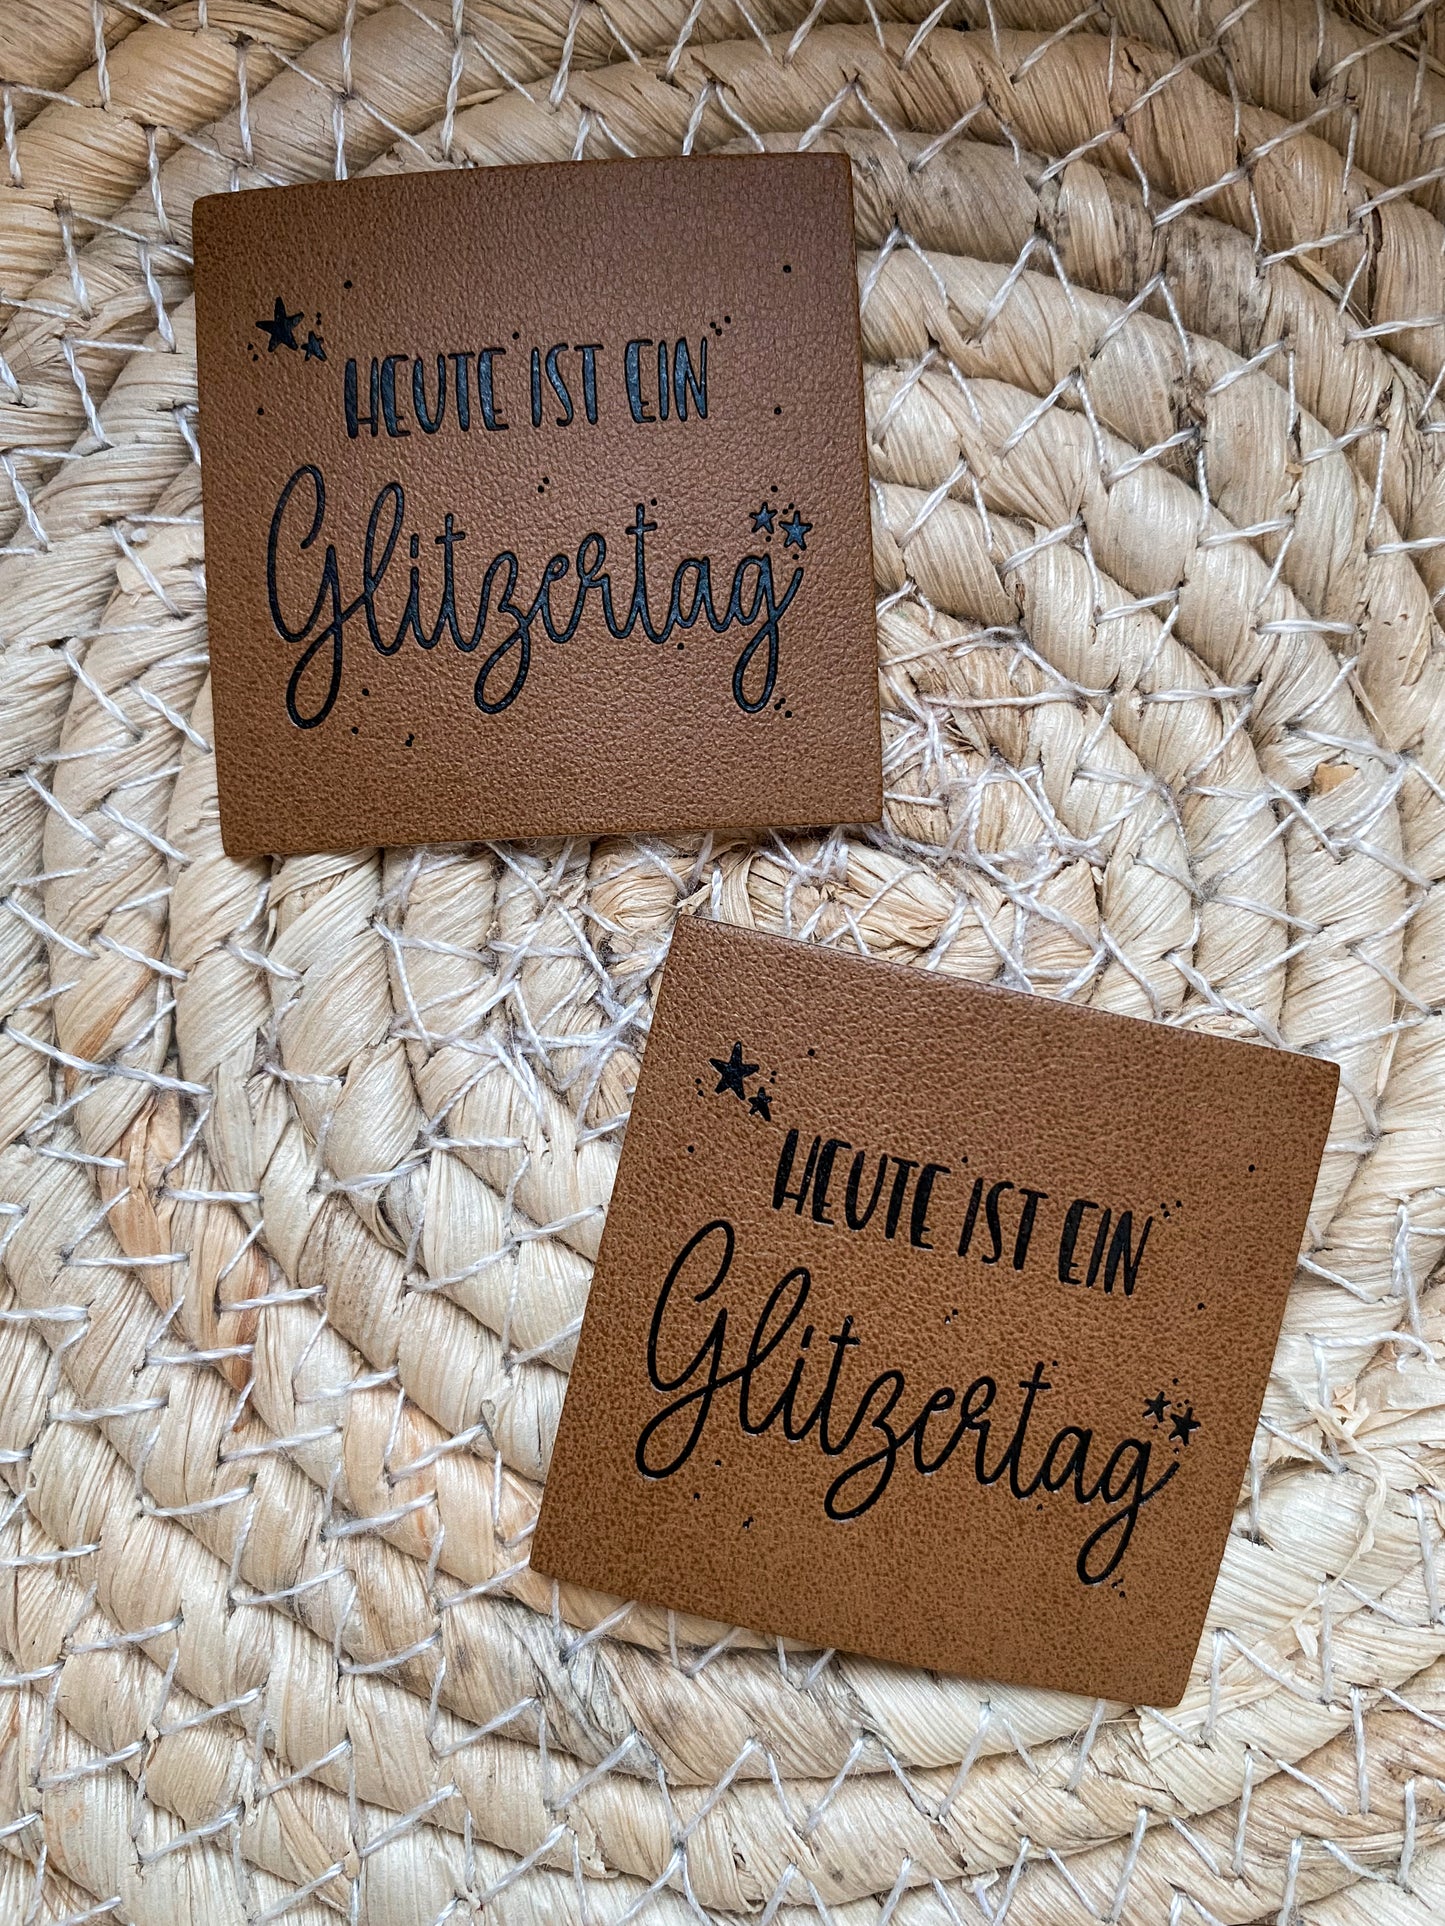 HEUTE IST EIN
Glitzertag
HEUTE IST EIN
Glitzertag